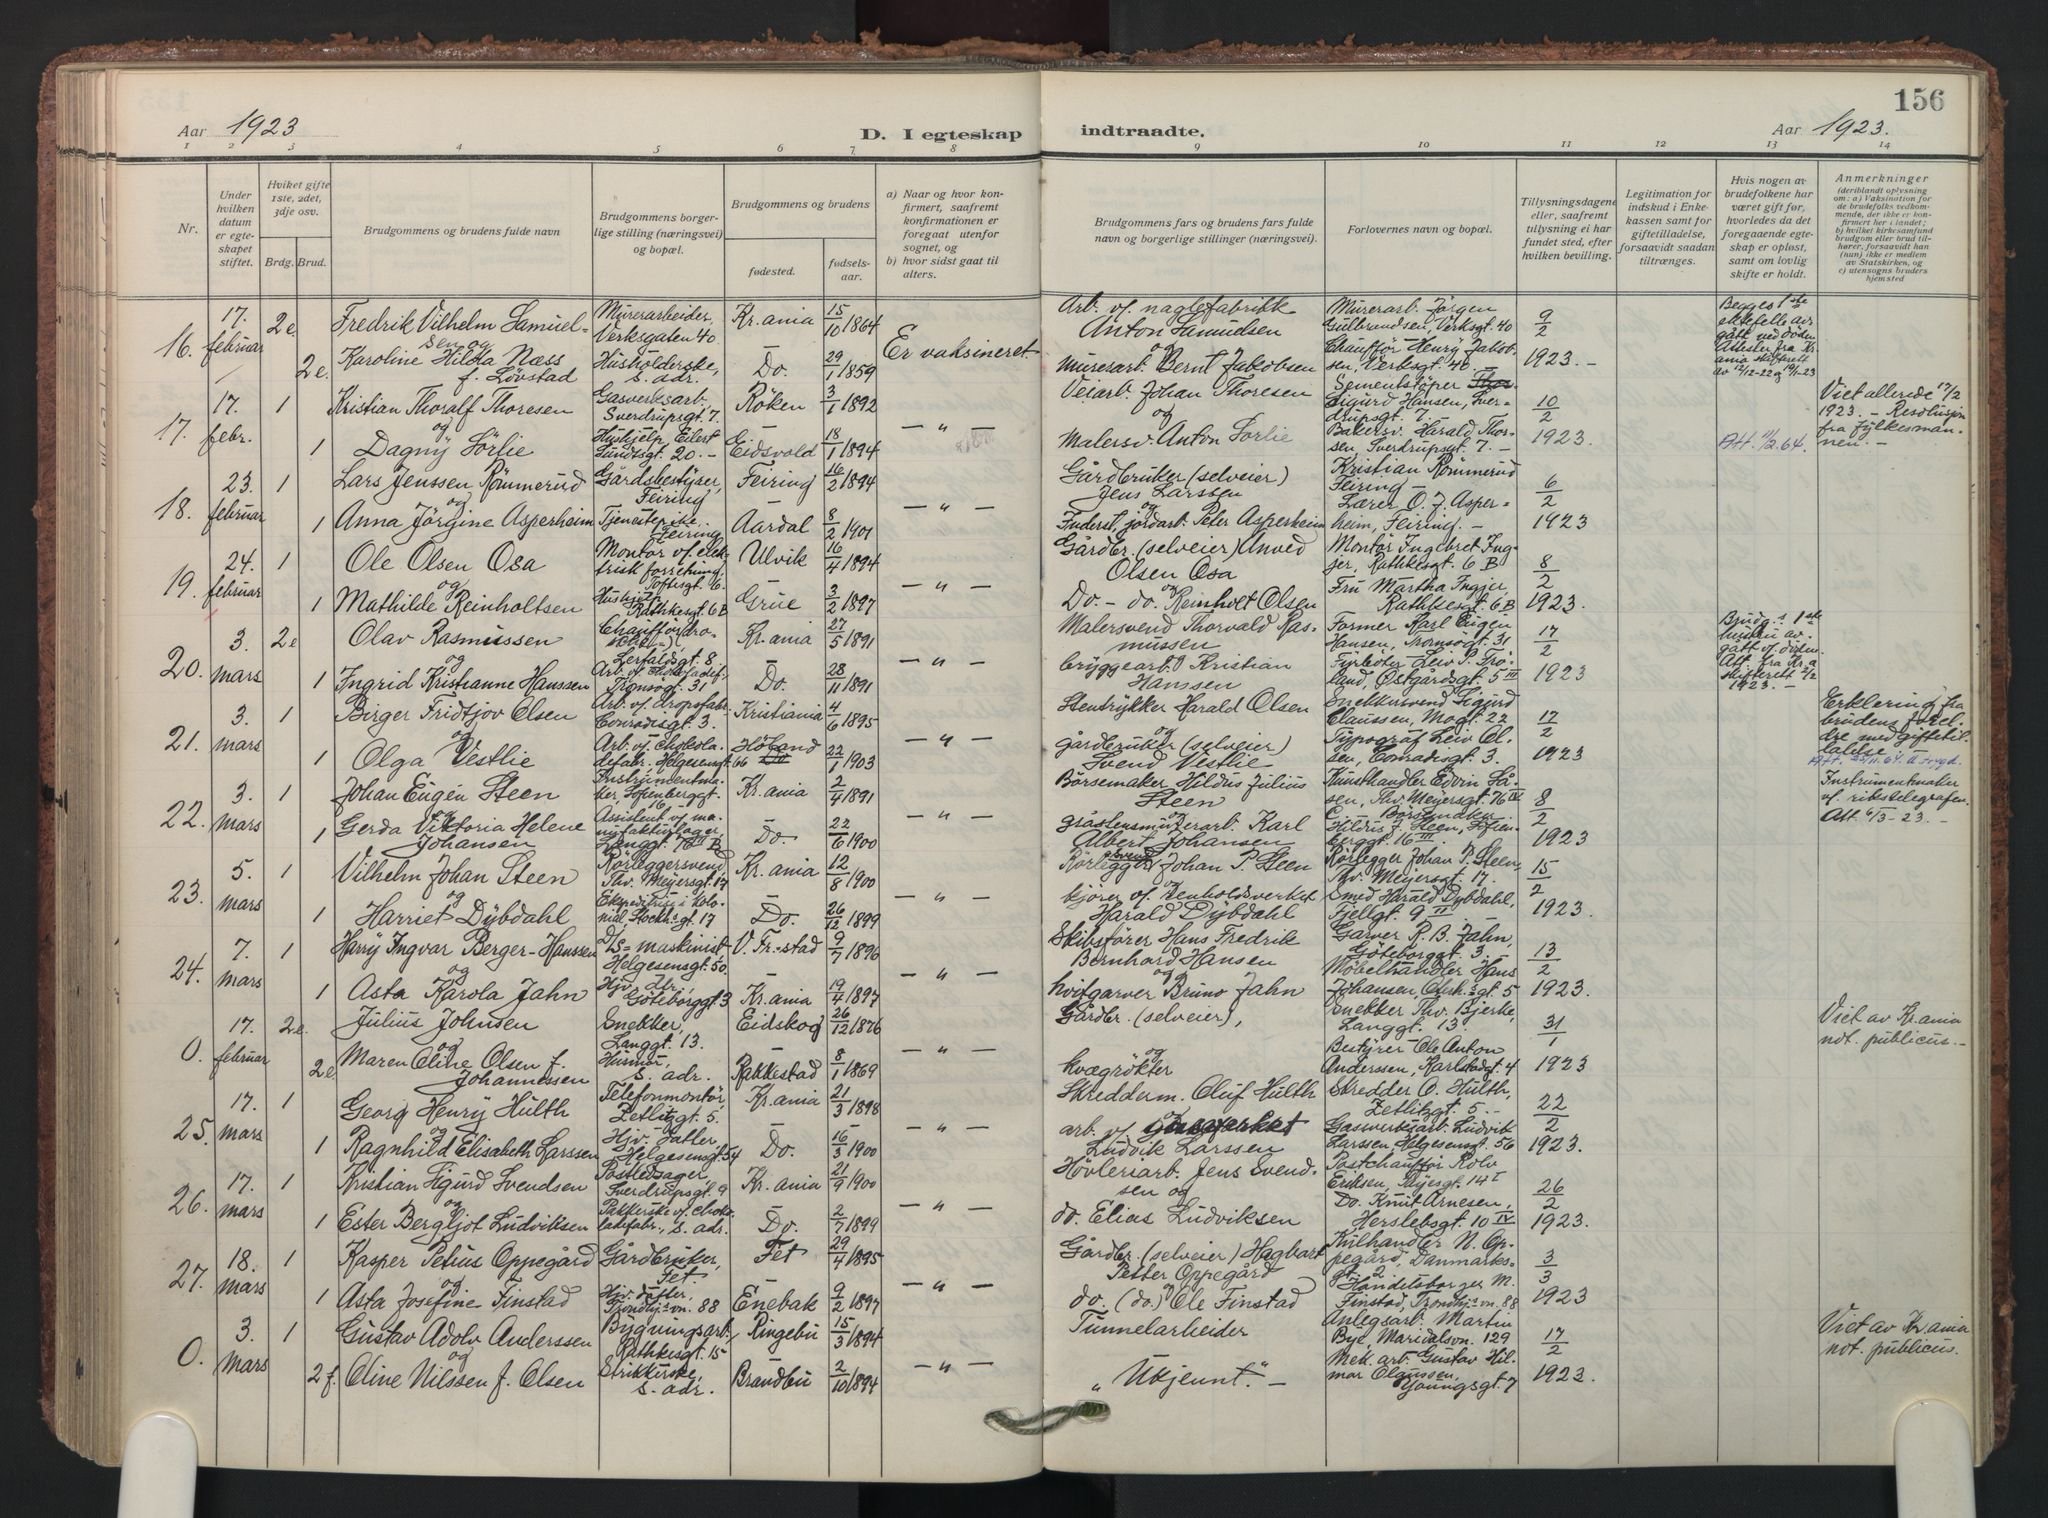 156
Aar 1923
D. I egteskap
indtraadte.
Aar 1923.
1 2 3 4 5 6 7 8 9 10 11 12 13 14
Nr.
Under hvilken datum er egteskapet stiftet.
Hviket gifte 1ste, 2det, 3dje osv.
Brdg. Brud.
Brudgommens og brudens fulde navn
Brudgommens borgerlige stilling (næringsvei) og bopæl.
Brudgommens og brudens
fødested.
fødselsaar.
a) Naar og hvor konfirmert, saafremt konfirmationen er foregaat utenfor sognet, og
b) hvor sidst gaat til alters.
Brudgommens fars og brudens fars fulde navn og borgerlige stillinger (næringsvei).
Forlovernes navn og bopæl.
Tillysningsdagene eller, saafremt tillysning ei har fundet sted, efter hvilken bevilling.
Legitimation for indskud i Enkekassen samt for giftetilladelse, forsaavidt saadan tiltrænges.
Hvis nogen av brudefolkene har været gift før, hvorledes da det foregaaende egteskap er opløst, samt om lovlig skifte er holdt.
Anmerkninger
(deriblandt oplysning om: a) Vaksination for de brudefolks vedkommende, der ikke er konfirmert her i landet; b) hvilket kirkesamfund brudgom eller brud tilhører, forsaavidt han (hun) ikke er medlem av Statskirken, og c) utensogns bruders hjemsted
16. 17. februar 2e
Fredrik Vilhelm Samuelsen og
Murerarbeider, Verksgaten 40
Kr.ania 15/10 1864
Er vaksineret
Arb. v. naglefabrikk Anton Samuelsen
og
Murerarb. Jørgen Gulbrandsen, Verksgt. 40
9/2 1923. –
Begges 1ste ektefelle avgått ved døden. Attester fra Kr.ania skifterett av 12/12-22 og 19/1-23
2e. Karoline Hilda Næss f. Løvstad
Husholderske, s. adr.
Do. 29/1 1859
Murerarb. Bernt Jakobsen
Chauffør Henry Jakobsen, Verksgt. 40. –
17. 17. febr. 1
Kristian Thoralf Thoresen
og
Gasverksarb. Sverdrupsgt. 7.
Røken 3/1 1892
– " –
Veiarb. Johan Thoresen
og
Sementstøper Sigurd Hansen, Sverdrupsgt. 7.
10/2 1923.
Att. 11/2.64.
Viet allerede 17/2 1923. – Resolusjon fra fylkesmannen. –
1 Dagny Sørlie
Hushjelp Eilert Sundtsgt. 20. –
Eidsvold 18/1 1894
Malersv. Anton Sørlie
Bakersv. Harald Thorsen, Sverdrupsgt. 7. –
18. 23. februar 1
Lars Jenssen Rømmerud
og
Gårdsbestyrer, Feiring
Feiring 16/2 1894
– " –
Gårdbruker (selveier) Jens Larssen
og
Kristian Rømmerud Feiring –
6/2 1923
1 Anna Jørgine Asperheim
Tjenestepike, Feiring
Aardal 8/2 1901
Inderst, jordarb. Peter Asperheim
Lærer O. J. Asperheim, Feiring. –
19. 24. februar 1
Ole Olsen Osa
og
Montør v. elektrisk forretning, Toftesgt. 6.
Ulvik 16/4 1894
– " –
Gårdbr. (selveier) Anved Olsen Osa
og
Montør Ingebret Ingjer, Rathkesgt. 6 B
8/2 1923.
1 Mathilde Reinholtsen
Hushjelp Rathkesgt. 6B
Grue 3/2 1897
Do. – do. Reinholt Olsen
Fru Martha Ingjer, Rathkesgt. 6B
20. 3. mars 2e
Olav Rasmussen
og
Chauffør (drosche –) Lerfaldsgt. 8
Kr.ania 27/5 1891
– " –
Malersvend Thorvald Rasmussen
Former Karl Eugen Hansen, Tromsøgt. 31
17/2 1923
Brudg.s 1ste hustru avgått v. døden. Att. fra Kr.a skifterett 2/2 1923. –
1 Ingrid Kristianne Hanssen
Arb. v. chokoladef., Tromsøgt. 31
Do. 28/11 1891
bryggearb. Kristian Hanssen
Fyrbøter Leiv P. Frøland, Østgårdsgt. 5 III
21. 3. mars 1
Birger Fridtjov Olsen
og
Arb. v. dropsfabr. Conradisgt. 3. –
Kristiania 4/6 1895
– " –
Stentrykker Harald Olsen
og
Snekkersvend Sigurd Claussen, Mogt. 22
17/2 1923
Erklering fra brudens foreldre med giftetillatelse. –
Att. 25/11.64.
1 Olga Vestlie
Arb. v. chokoladefabr. Helgesensgt. 66
Høland 22/1 1903
gårdbruker (selveier) Svend Vestlie
Typograf Leiv Olsen, Conradisgt. 3.
22. 3. mars 1
Johan Eugen Steen
Instrumentmaker, Sofienberggt. 16
Kr.ania 2/4 1891
– " –
Børsemaker Hildus Julius Steen
og
Kunsthandler Edvin Låsen, Thv. Meyersgt. 76 IV
8/2 1923
Instrumentmaker v. rikstelegrafen. Att. 6/3-23. –
1 Gerda Viktoria Helene Johansen
Assistent v. manufakturlager, Langgt. 16 III B
Do. 22/6 1900
gråstensmurerarb. Karl Albert Johansen
Børsemaker Hildus J. Steen, Sofienberggt. 16 III
23. 5. mars 1
Vilhelm Johan Steen
og
Rørleggersvend, Thv. Meyersgt. 17
Kr.ania 12/8 1900
– " –
Rørleggersvend Johan P. Steen
og
Rørlegger Johan P. Steen, Thv. Meyersgt. 17.
15/2 1923.
1 Harriet Dybdahl
Ekspeditrise i kolonial Stockh.gt. 17
Do. 26/12 1899
kjører v. Renholdsverket Harald Dybdahl
Smed Harald Dybdahl, Fjellgt. 9 II
24. 7. mars 1
Harry Ingvar Berger-Hanssen
og
D/s = maskinist Helgesensgt. 50
V. Fr.-stad 9/7 1896
– " –
Skibsfører Hans Fredrik Bernhard Hansen
og
Garver R. B. Jahn, Göteborggt. 3. –
13/2 1923.
1 Asta Karola Jahn
Hjv. dtr. Göteborggt. 3
Kr.ania 19/4 1897
hvitgarver Bruno Jahn
Møbelhandler Hans Johansen, Stockh.gt. 5
0. 17. februar 2e.
Julius Johnsen
og
Snekker, Langgt. 13.
Eidskog 26/12 1876
– " –
Gårdbr. (selveier),
og
Snekker Thv. Bjerke, Langgt. 13.
31/1 1923
Viet av Kr.ania not. publicus. –
2e. Maren Oline Olsen f. Johannessen
Husmor, s. adr.
Rakkestad 8/1 1869
kvægrøkter
Bestyrer Ole Anton Anderssen, Karlstadgt. 4
25. 17. mars 1
Georg Henry Hulth
Telefonmontør, Zetlitzgt. 5.
Kr.ania 21/3 1898
– " –
Skredderm. Oluf Hulth
og
Skredder O. Hulth, Zetlitzgt. 5. –
22/2 1923.
1 Ragnhild Elisabeth Larssen
Hjv. datter, Helgesensgt. 54
Do. 16/3 1900
arb. v. gassverket Ludvik Larssen
Gasverksarb. Ludvik Larssen Helgesensgt. 56
26. 17. mars 1
Kristian Sigurd Svendsen
og
Postledsager, Sverdrupsgt. 9
Kr.ania 21/9 1900
– " –
Høvleriarb. Jens Svendsen og
Postchauffør Rolv Eriksen, Thjesgt. 14 I
26/2 1923.
1 Ester Bergljot Ludviksen
Pakkerske v. chokoladefabr., s. adr.
Do. 2/7 1899
do. Elias Ludviksen
Do. Knut Arnesen, Herslebsgt. 10 IV
27. 18. mars 1
Kasper Petius Oppegård
og
Gårdbruker, Fet
Fet 29/4 1895
– " –
Gårdbr. (selveier) Hagbart Petter Oppegård
og
Kulhandler N. Oppegård, Danmarksgt. 2
3/3 1923
1 Asta Josefine Finstad
Hjv. datter, Trondhj.vn. 88
Enebak 9/2 1897
do. (do.) Ole Finstad
Handelsborger M. Finstad, Trondhj.vn. 88
0. 3. mars 1
Gustav Adolv Anderssen
og
Bygningsarb. Rathkesgt. 15
Ringebu 15/3 1894
– " –
Tunnelarbeider
Anlegsarb. Martin Bye, Maridalsvn. 129
17/2 1923.
Viet av Kr.ania not. publicus.
2 f. Oline Nilssen f. Olsen
Strikkerske, s. adr.
Brandbu 2/10 1894
"Ukjennt." –
Mek. arb. Gustav Hilmar Olaussen, Youngsgt. 7